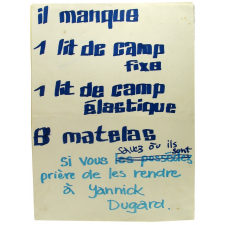 il manque
1 lit de camp
fixe
1 lit de camp
élastique
8 matelas
savez où ils
sont
Si vous les possédez
prière de les rendre
à Yannick
Dugard..